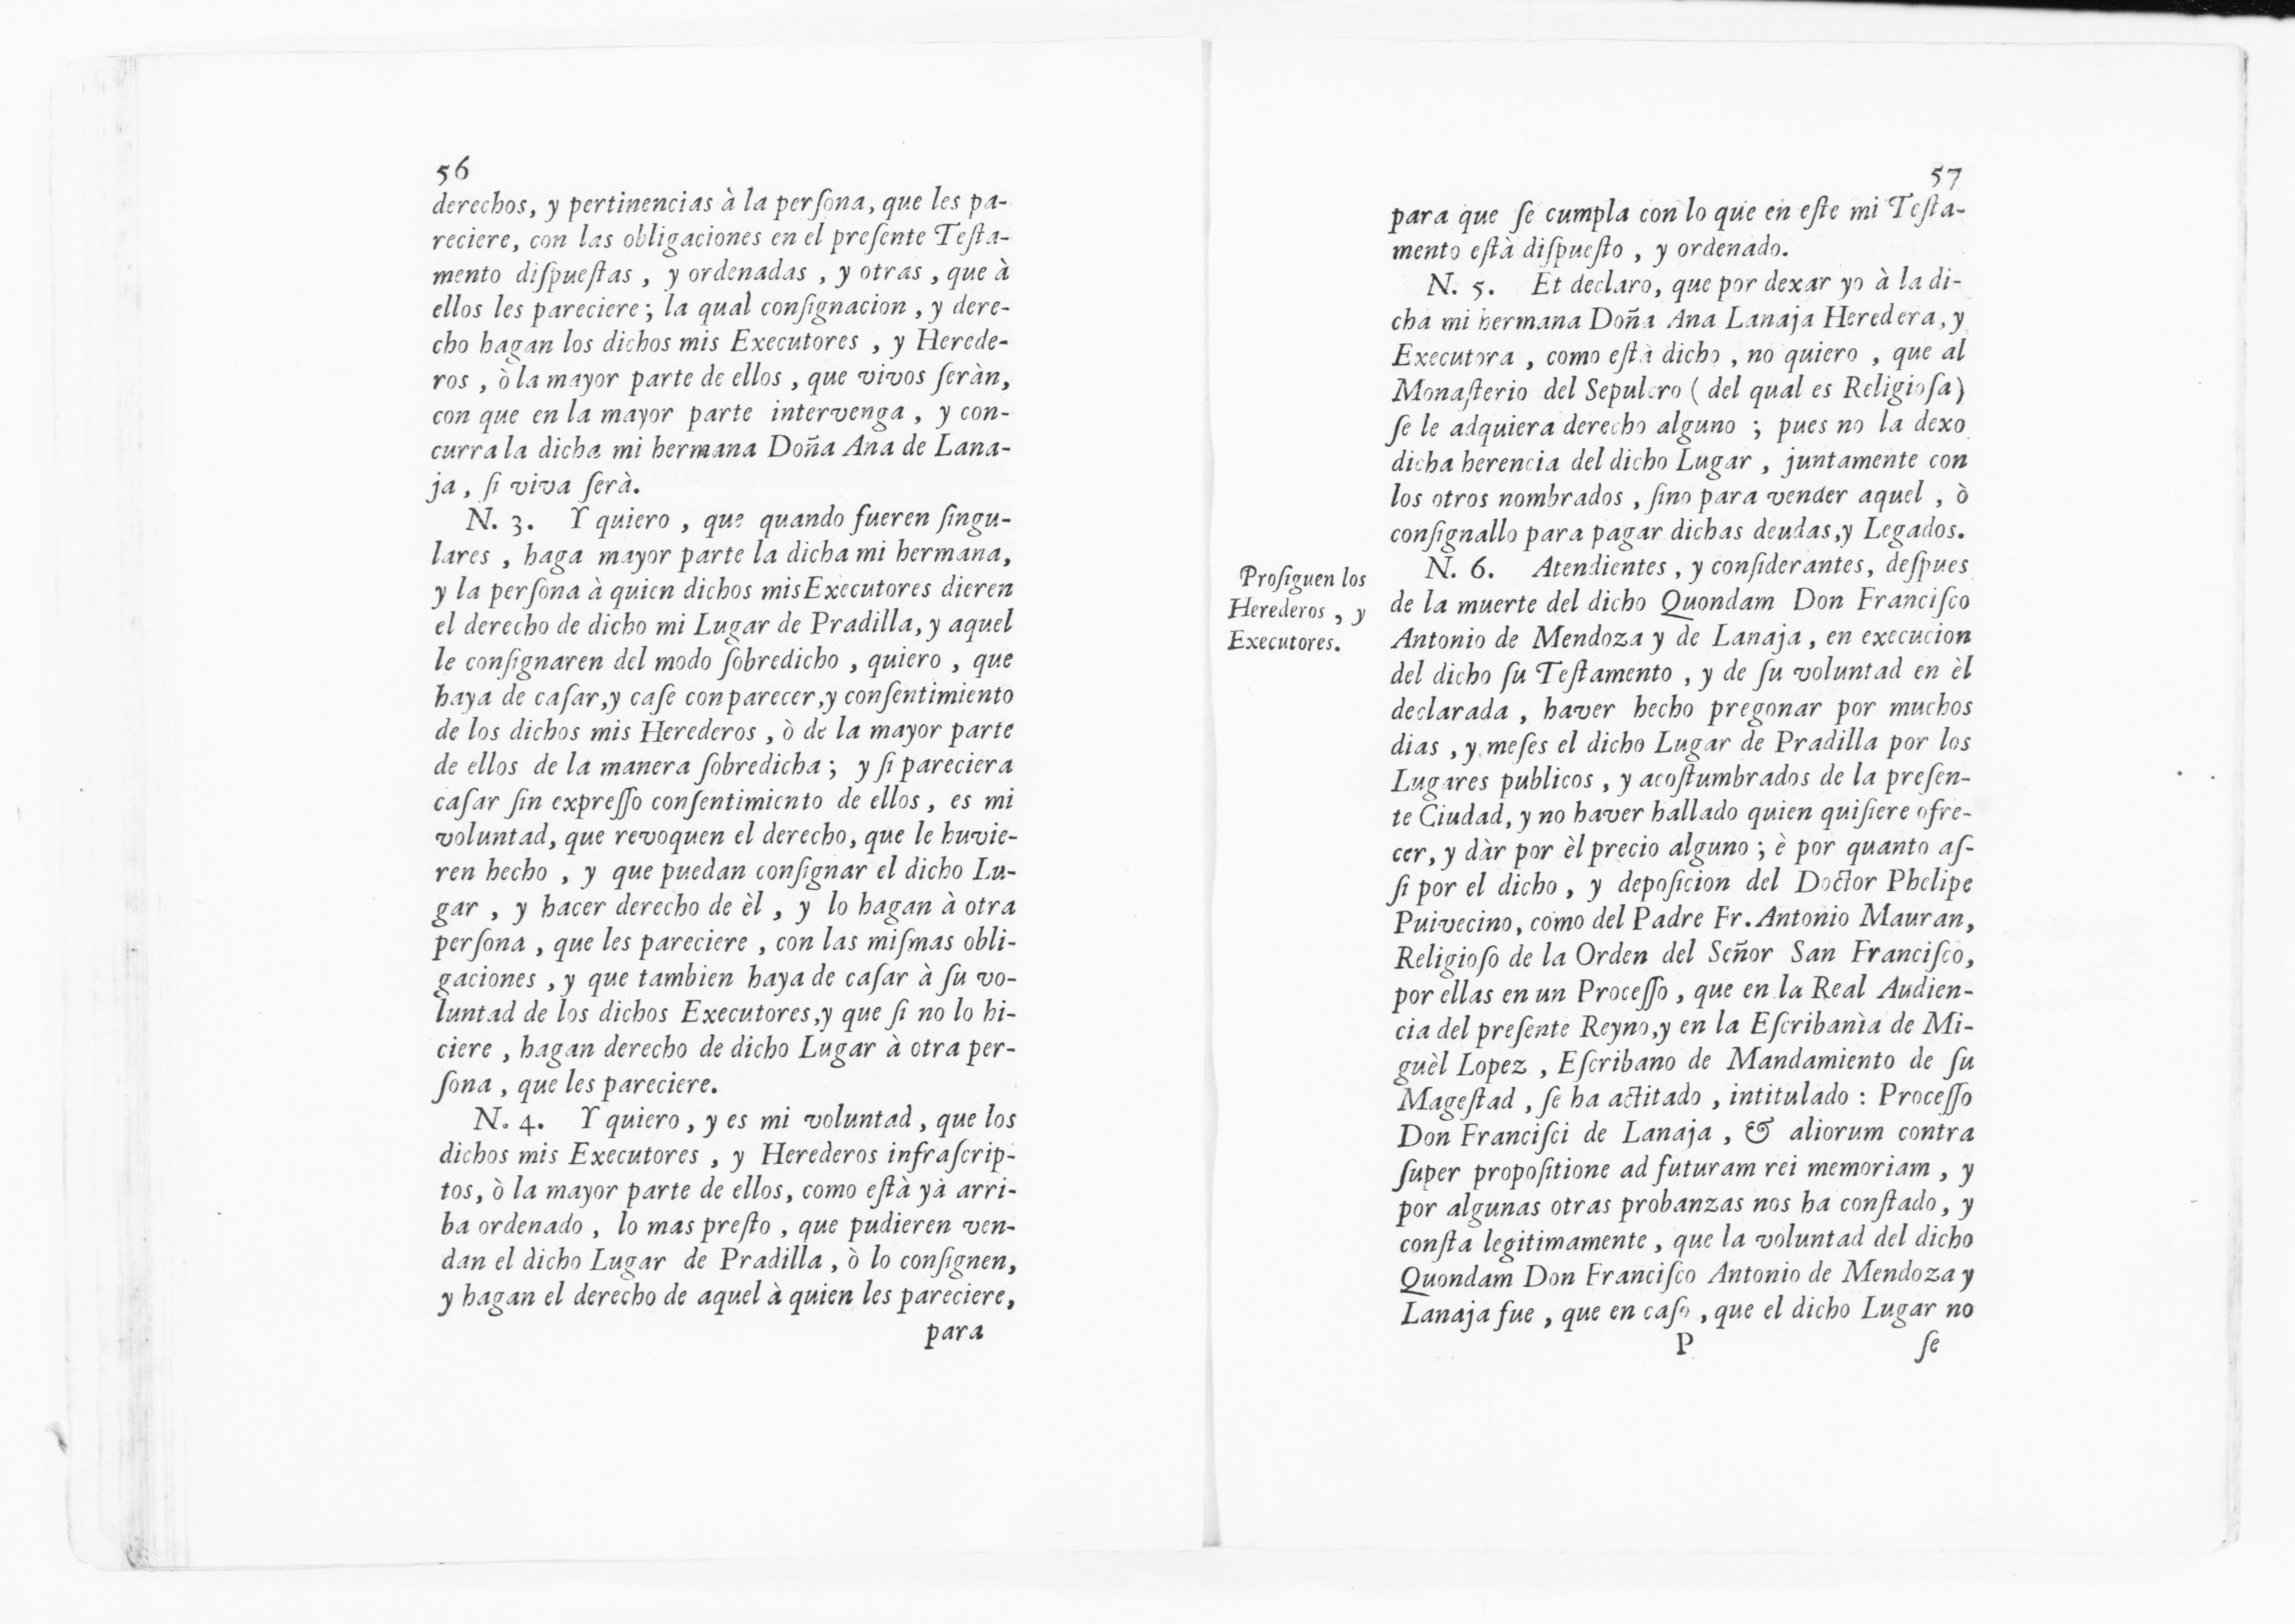 56
derechos, y pertinencias à la perſona, que les pa-
reciere, con las obligaciones en el preſente Teſta-
mento diſpueſtas, y ordenadas, y otras, que à
ellos les pareciere; la qual conſignacion, y dere-
cho hagan los dichos mis Executores, y Herede-
ros, ò la mayor parte de ellos, que vivos ſeràn,
con que en la mayor parte intervenga, y con-
curra la dicha mi hermana Doña Ana de Lana-
ja, ſi viva ſerà.
N. 3. Y quiero, que quando fueren ſingu-
lares, haga mayor parte la dicha mi hermana,
y la perſona à quien dichos mis Executores dieren
el derecho de dicho mi Lugar de Pradilla, y aquel
le conſignaren del modo ſobredicho, quiero, que
haya de caſar, y caſe con parecer, y conſentimiento
de los dichos mis Herederos, ò de la mayor parte
de ellos de la manera ſobredicha; y ſi pareciera
caſar ſin expreſſo conſentimiento de ellos, es mi
voluntad, que revoquen el derecho, que le huvie-
ren hecho, y que puedan conſignar el dicho Lu-
gar, y hacer derecho de èl, y lo hagan à otra
perſona, que les pareciere, con las miſmas obli-
gaciones, y que tambien haya de caſar à ſu vo-
luntad de los dichos Executores, y que ſi no lo hi-
ciere, hagan derecho de dicho Lugar à otra per-
ſona, que les pareciere.
N. 4. Y quiero, y es mi voluntad, que los
dichos mis Executores, y Herederos infraſcrip-
tos, ò la mayor parte de ellos, como eſtà yà arri-
ba ordenado, lo mas preſto, que pudieren ven-
dan el dicho Lugar de Pradilla, ò lo conſignen,
y hagan el derecho de aquel à quien les pareciere,
para
57
para que ſe cumpla con lo que en eſte mi Teſta-
mento eſtà diſpueſto, y ordenado.
N. 5. Et declaro, que por dexar yo à la di-
cha mi hermana Doña Ana Lanaja Heredera, y
Executora, como eſtà dicho, no quiero, que al
Monaſterio del Sepulcro (del qual es Religioſa)
ſe le adquiera derecho alguno; pues no la dexo
dicha herencia del dicho Lugar, juntamente con
los otros nombrados, ſino para vender aquel, ò
conſignallo para pagar dichas deudas, y Legados.
Proſiguen los
Herederos, y
Executores.
N. 6. Atendientes, y conſiderantes, deſpues
de la muerte del dicho Quondam Don Franciſco
Antonio de Mendoza y de Lanaja, en execucion
del dicho ſu Teſtamento, y de ſu voluntad en èl
declarada, haver hecho pregonar por muchos
dias, y meſes el dicho Lugar de Pradilla por los
Lugares publicos, y acoſtumbrados de la preſen-
te Ciudad, y no haver hallado quien quiſiere ofre-
cer, y dàr por èl precio alguno; è por quanto aſ-
ſi por el dicho, y depoſicion del Doctor Phelipe
Puivecino, como del Padre Fr. Antonio Mauran,
Religioſo de la Orden del Señor San Franciſco,
por ellas en un Proceſſo, que en la Real Audien-
cia del preſente Reyno, y en la Eſcribanìa de Mi-
guèl Lopez, Eſcribano de Mandamiento de ſu
Mageſtad, ſe ha actitado, intitulado: Proceſſo
Don Franciſci de Lanaja, & aliorum contra
ſuper propoſitione ad futuram rei memoriam, y
por algunas otras probanzas nos ha conſtado, y
conſta legitimamente, que la voluntad del dicho
Quondam Don Franciſco Antonio de Mendoza y
Lanaja fue, que en caſo, que el dicho Lugar no
P
ſe